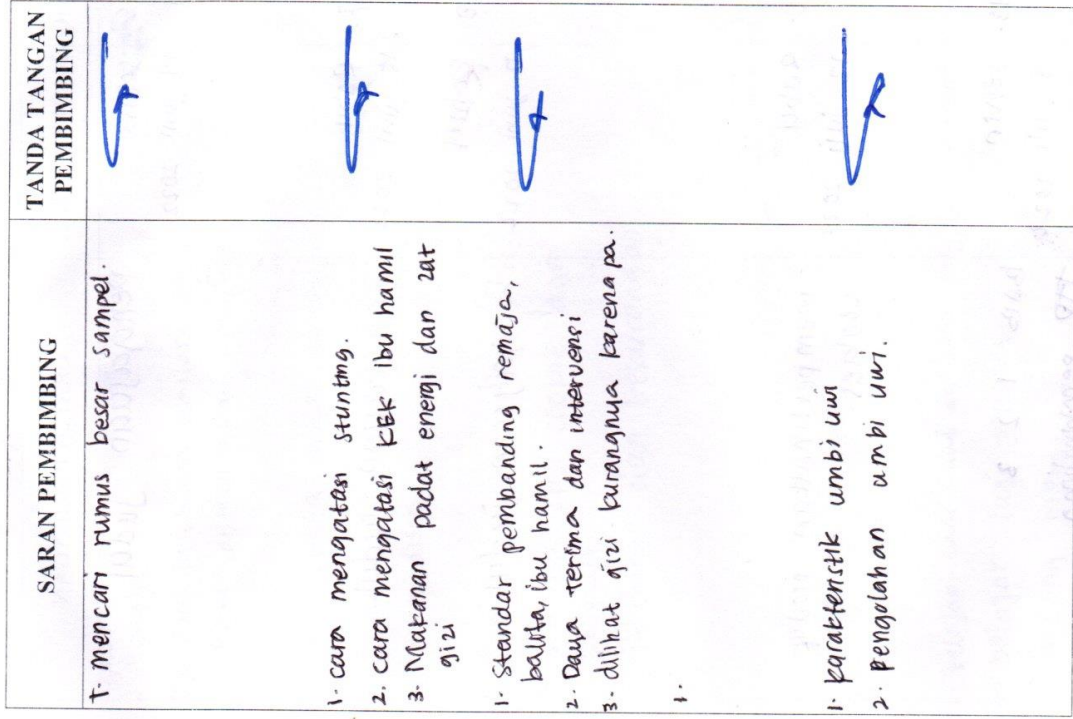 SARAN PEMBIMBING
TANDA TANGAN
PEMBIMBING
1. mencari rumus besar sampel.
1. cara mengatasi stunting.
2. cara mengatasi KEK ibu hamil
3. Makanan padat energi dan zat
gizi
1. Standar pembanding remaja,
balita, ibu hamil.
2. Daya terima dan intervensi
3. dilihat gizi kurangnya karena pa.
1.
1. karakteristik umbi uwi
2. pengolahan umbi uwi.